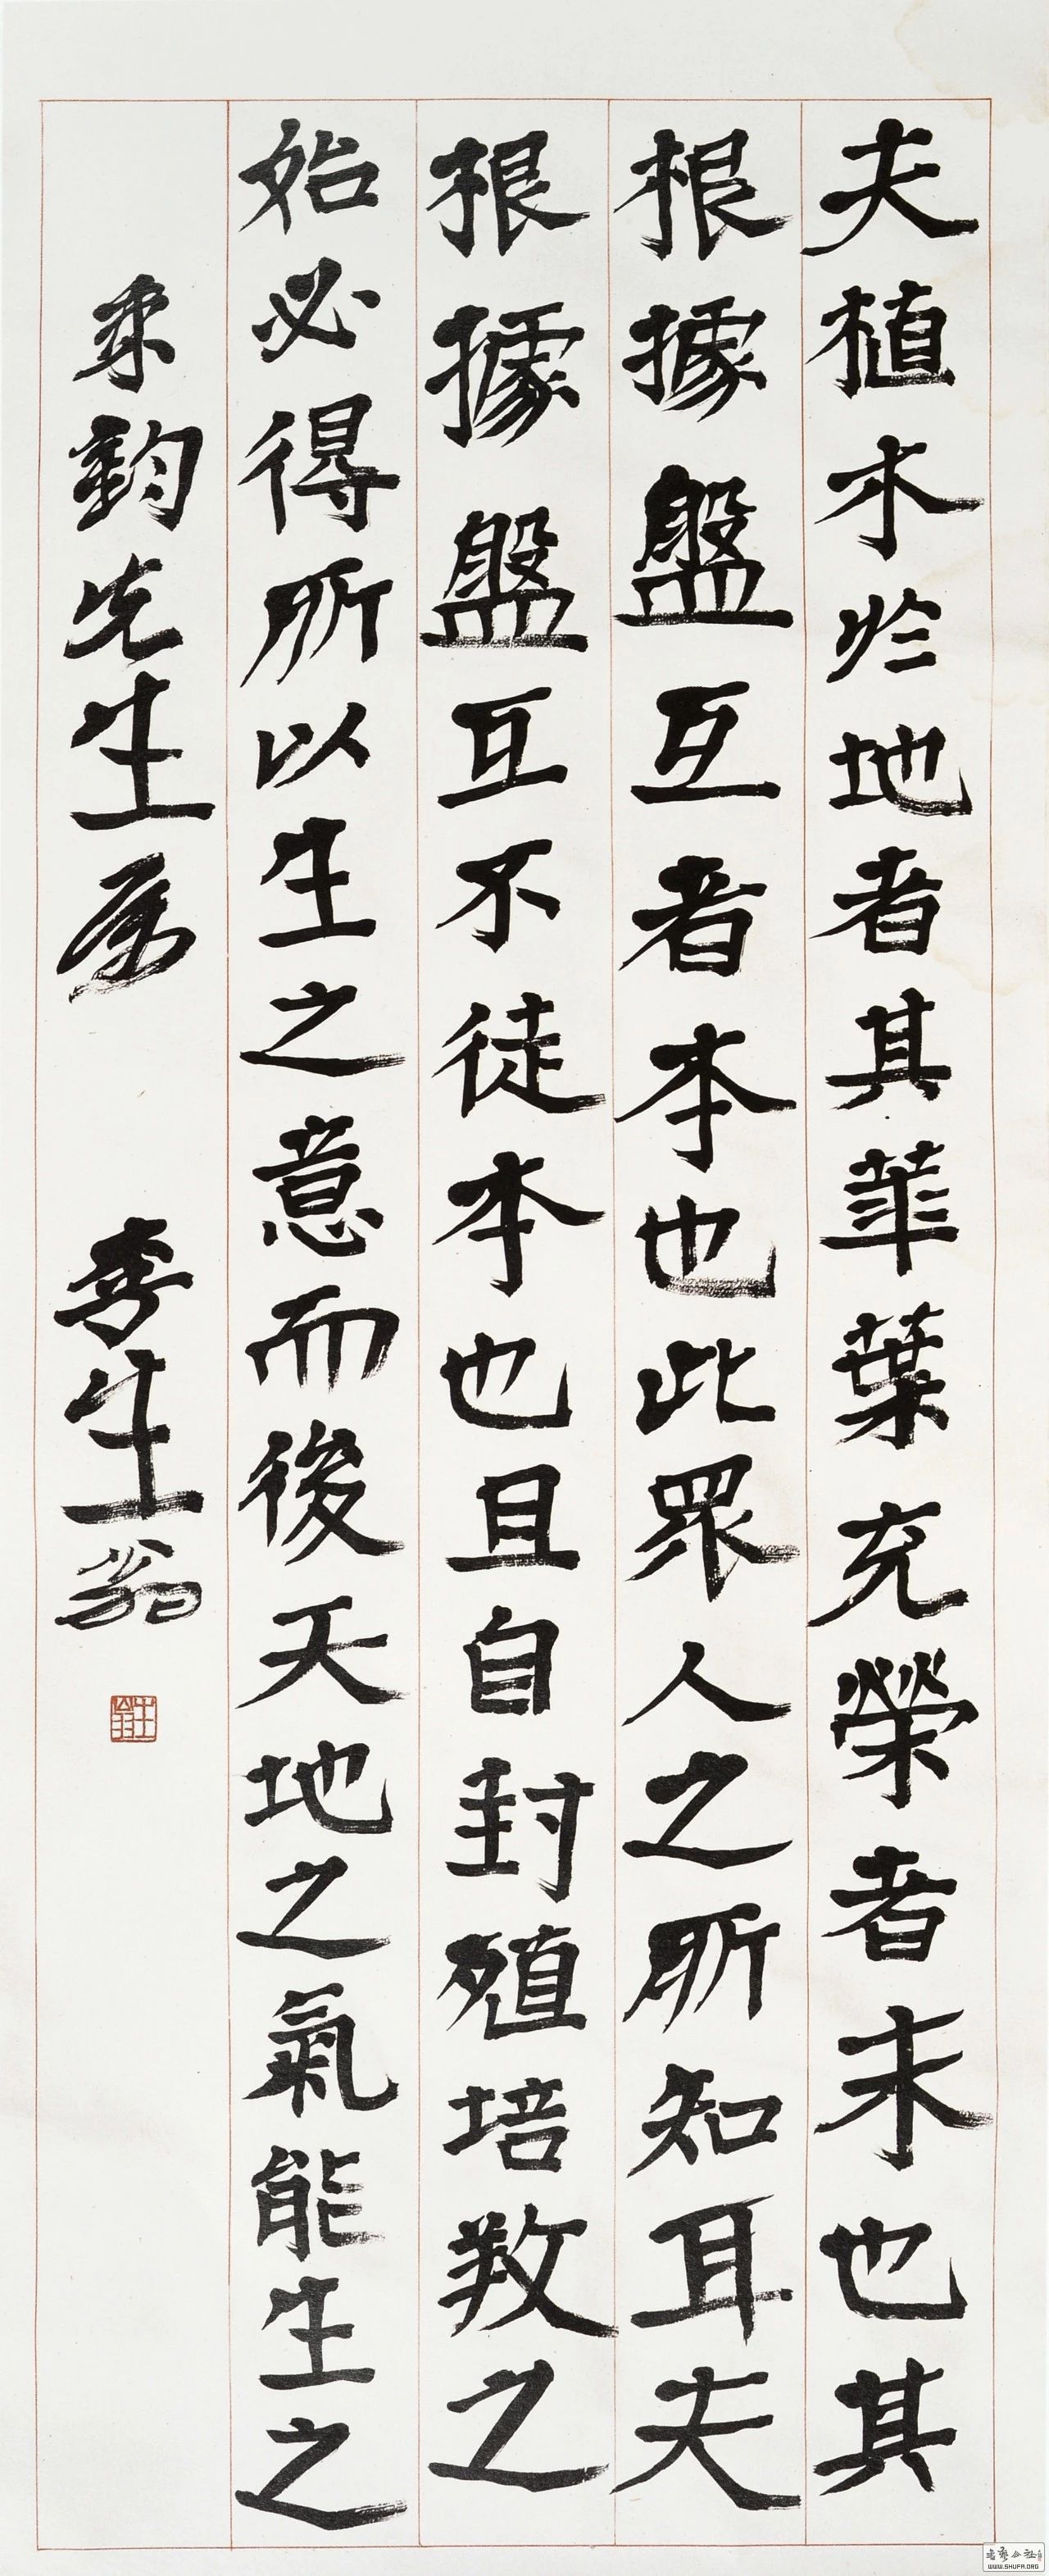 夫植木於地者其華葉充榮者末也其
根據盤互者本也此眾人之所知耳夫
根據盤互不徒本也且自封殖培救之
始必得所以生之意而後天地之氣能生之
秉鈞先生属
李生翁
生翁
WWW.SHUFA.ORG